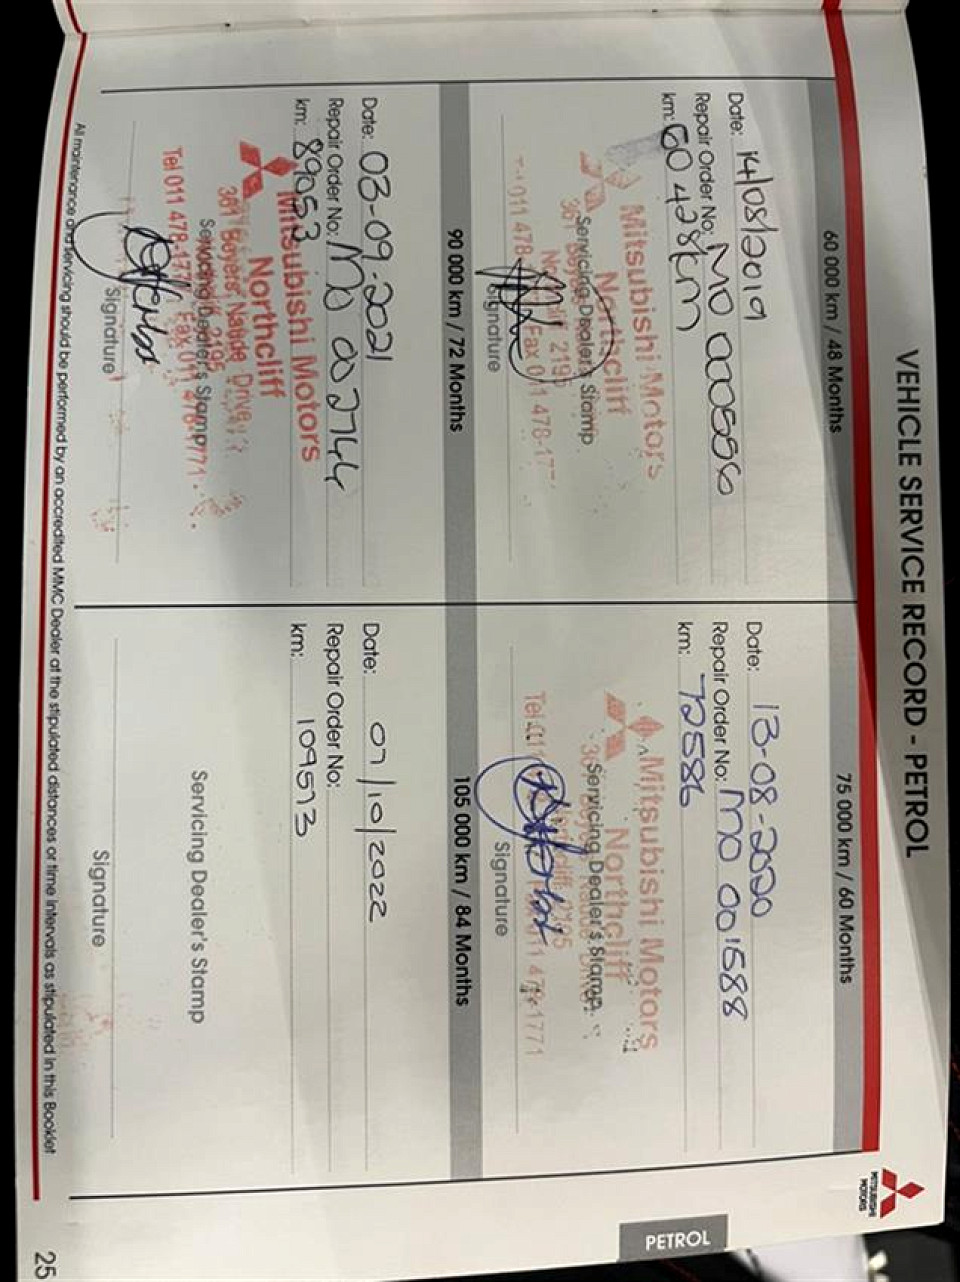 VEHICLE SERVICE RECORD - PETROL
MITSUBISHI
MOTORS
PETROL
60 000 km / 48 Months
Date: 14/08/2019
Repair Order No: MO 000556
km: 60 428km
Mitsubishi Motors
Northcliff
Servicing Dealer's Stamp
Signature
75 000 km / 60 Months
Date: 13-08-2020
Repair Order No: MO 001588
km: 72586
Mitsubishi Motors
Northcliff
Servicing Dealer's Stamp
Signature
90 000 km / 72 Months
Date: 03-09-2021
Repair Order No: MO 002744
km: 89053
Mitsubishi Motors
Northcliff
361 Beyers Naude Drive
Servicing Dealer's Stamp
Tel 011 478-1771 Fax 011 478-1771
Signature
105 000 km / 84 Months
Date: 07/10/2022
Repair Order No:
km: 109573
Servicing Dealer's Stamp
Signature
All maintenance and servicing should be performed by an accredited MMC Dealer at the stipulated distances or time intervals as stipulated in this Booklet
25